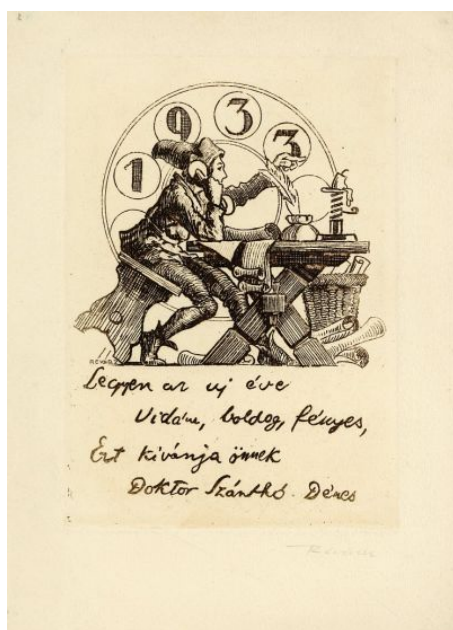 1933
RÉVÉSZ
Legyen az uj éve
Vidám, boldog, fényes,
Ezt kivánja önnek
Doktor Szánthó Dénes